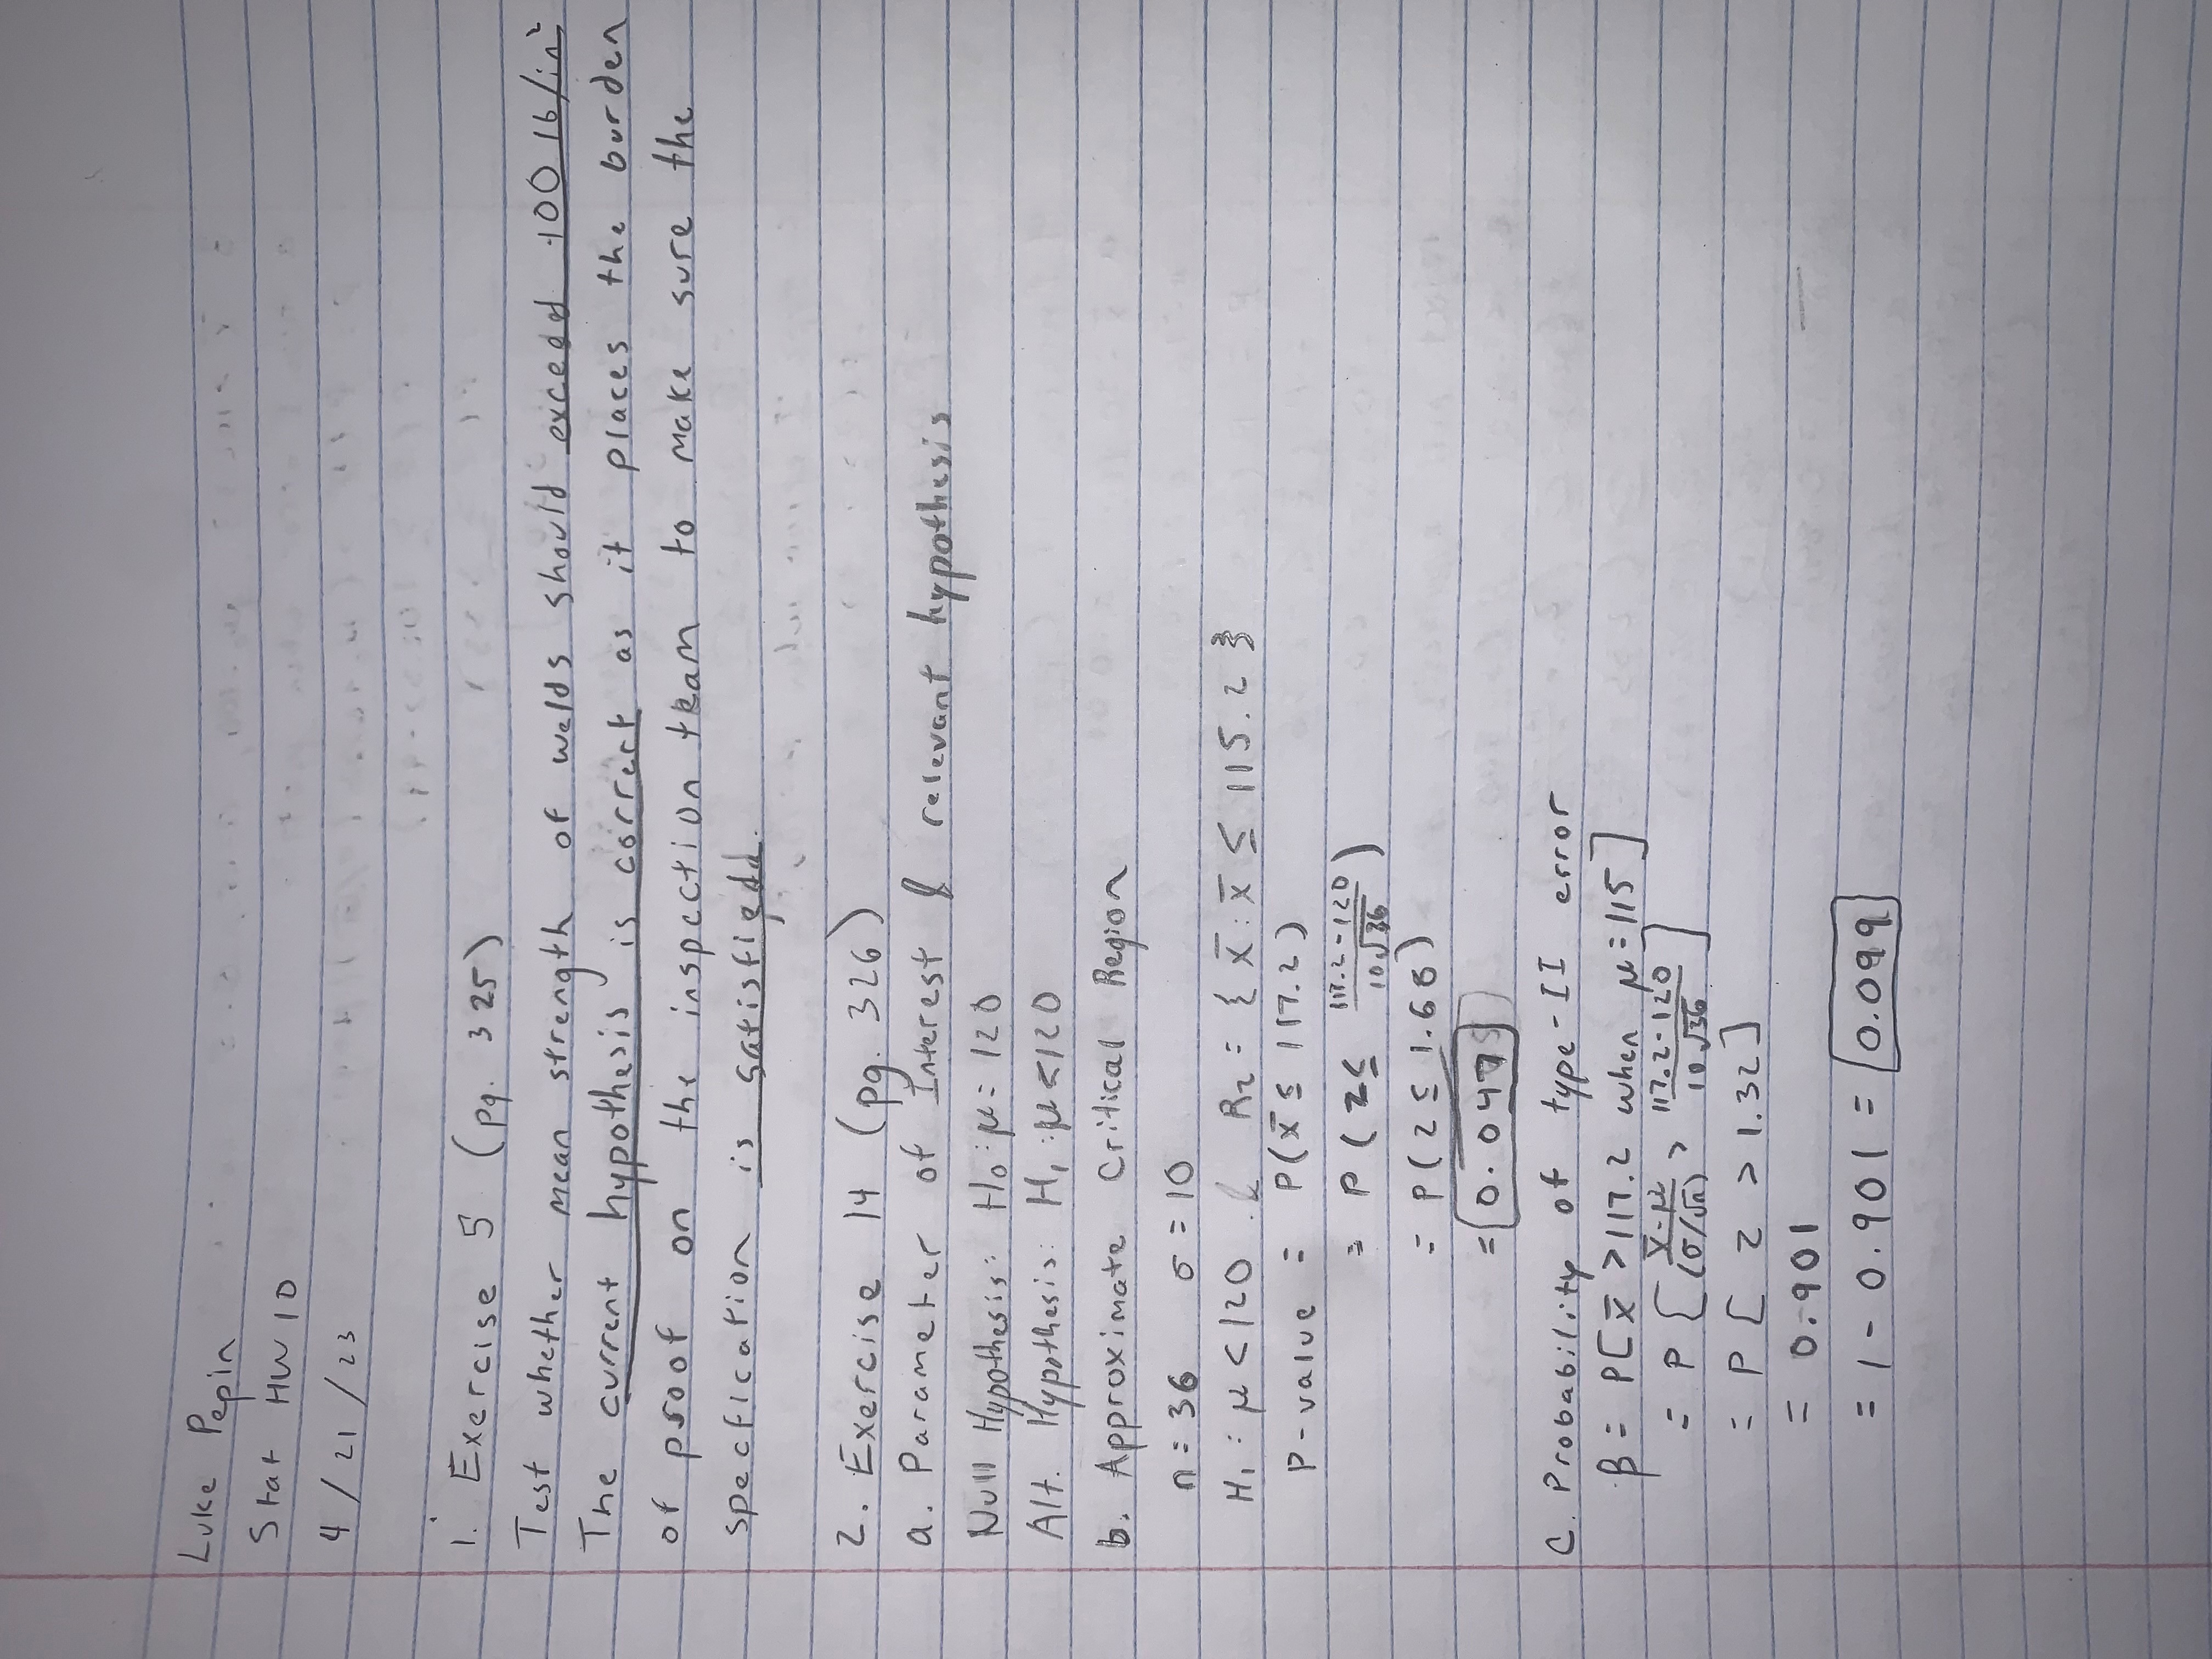 Luke Pepin
Stat HW 10
4 / 21 / 23
1. Exercise 5 (pg. 325)
Test whether mean strength of welds should exceed 100 lb/in²
The current hypothesis is correct as it places the burden
of proof on the inspection team to make sure the
specfication is satisfiedd.
2. Exercise 14 (pg. 326)
a. Parameter of Interest & relevant hypothesis
Null Hypothesis: H₀: μ = 120
Alt. Hypothesis: H₁: μ < 120
b. Approximate Critical Region
n = 36 σ = 10
H₁ : μ < 120 & R₂ = { x̄ : x̄ ≤ 115.2 }
P-value = P(x̄ ≤ 117.2)
= P ( z ≤ (117.2 - 120)/(10√36) )
= P ( z ≤ 1.68 )
= 0.047
C. Probability of type-II error
β = P[ x̄ > 117.2 when μ = 115 ]
= P [ (x̄ - μ)/(σ/√n) > (117.2 - 120)/(10√36) ]
= P [ z > 1.32 ]
= 0.901
= 1 - 0.901 = 0.099